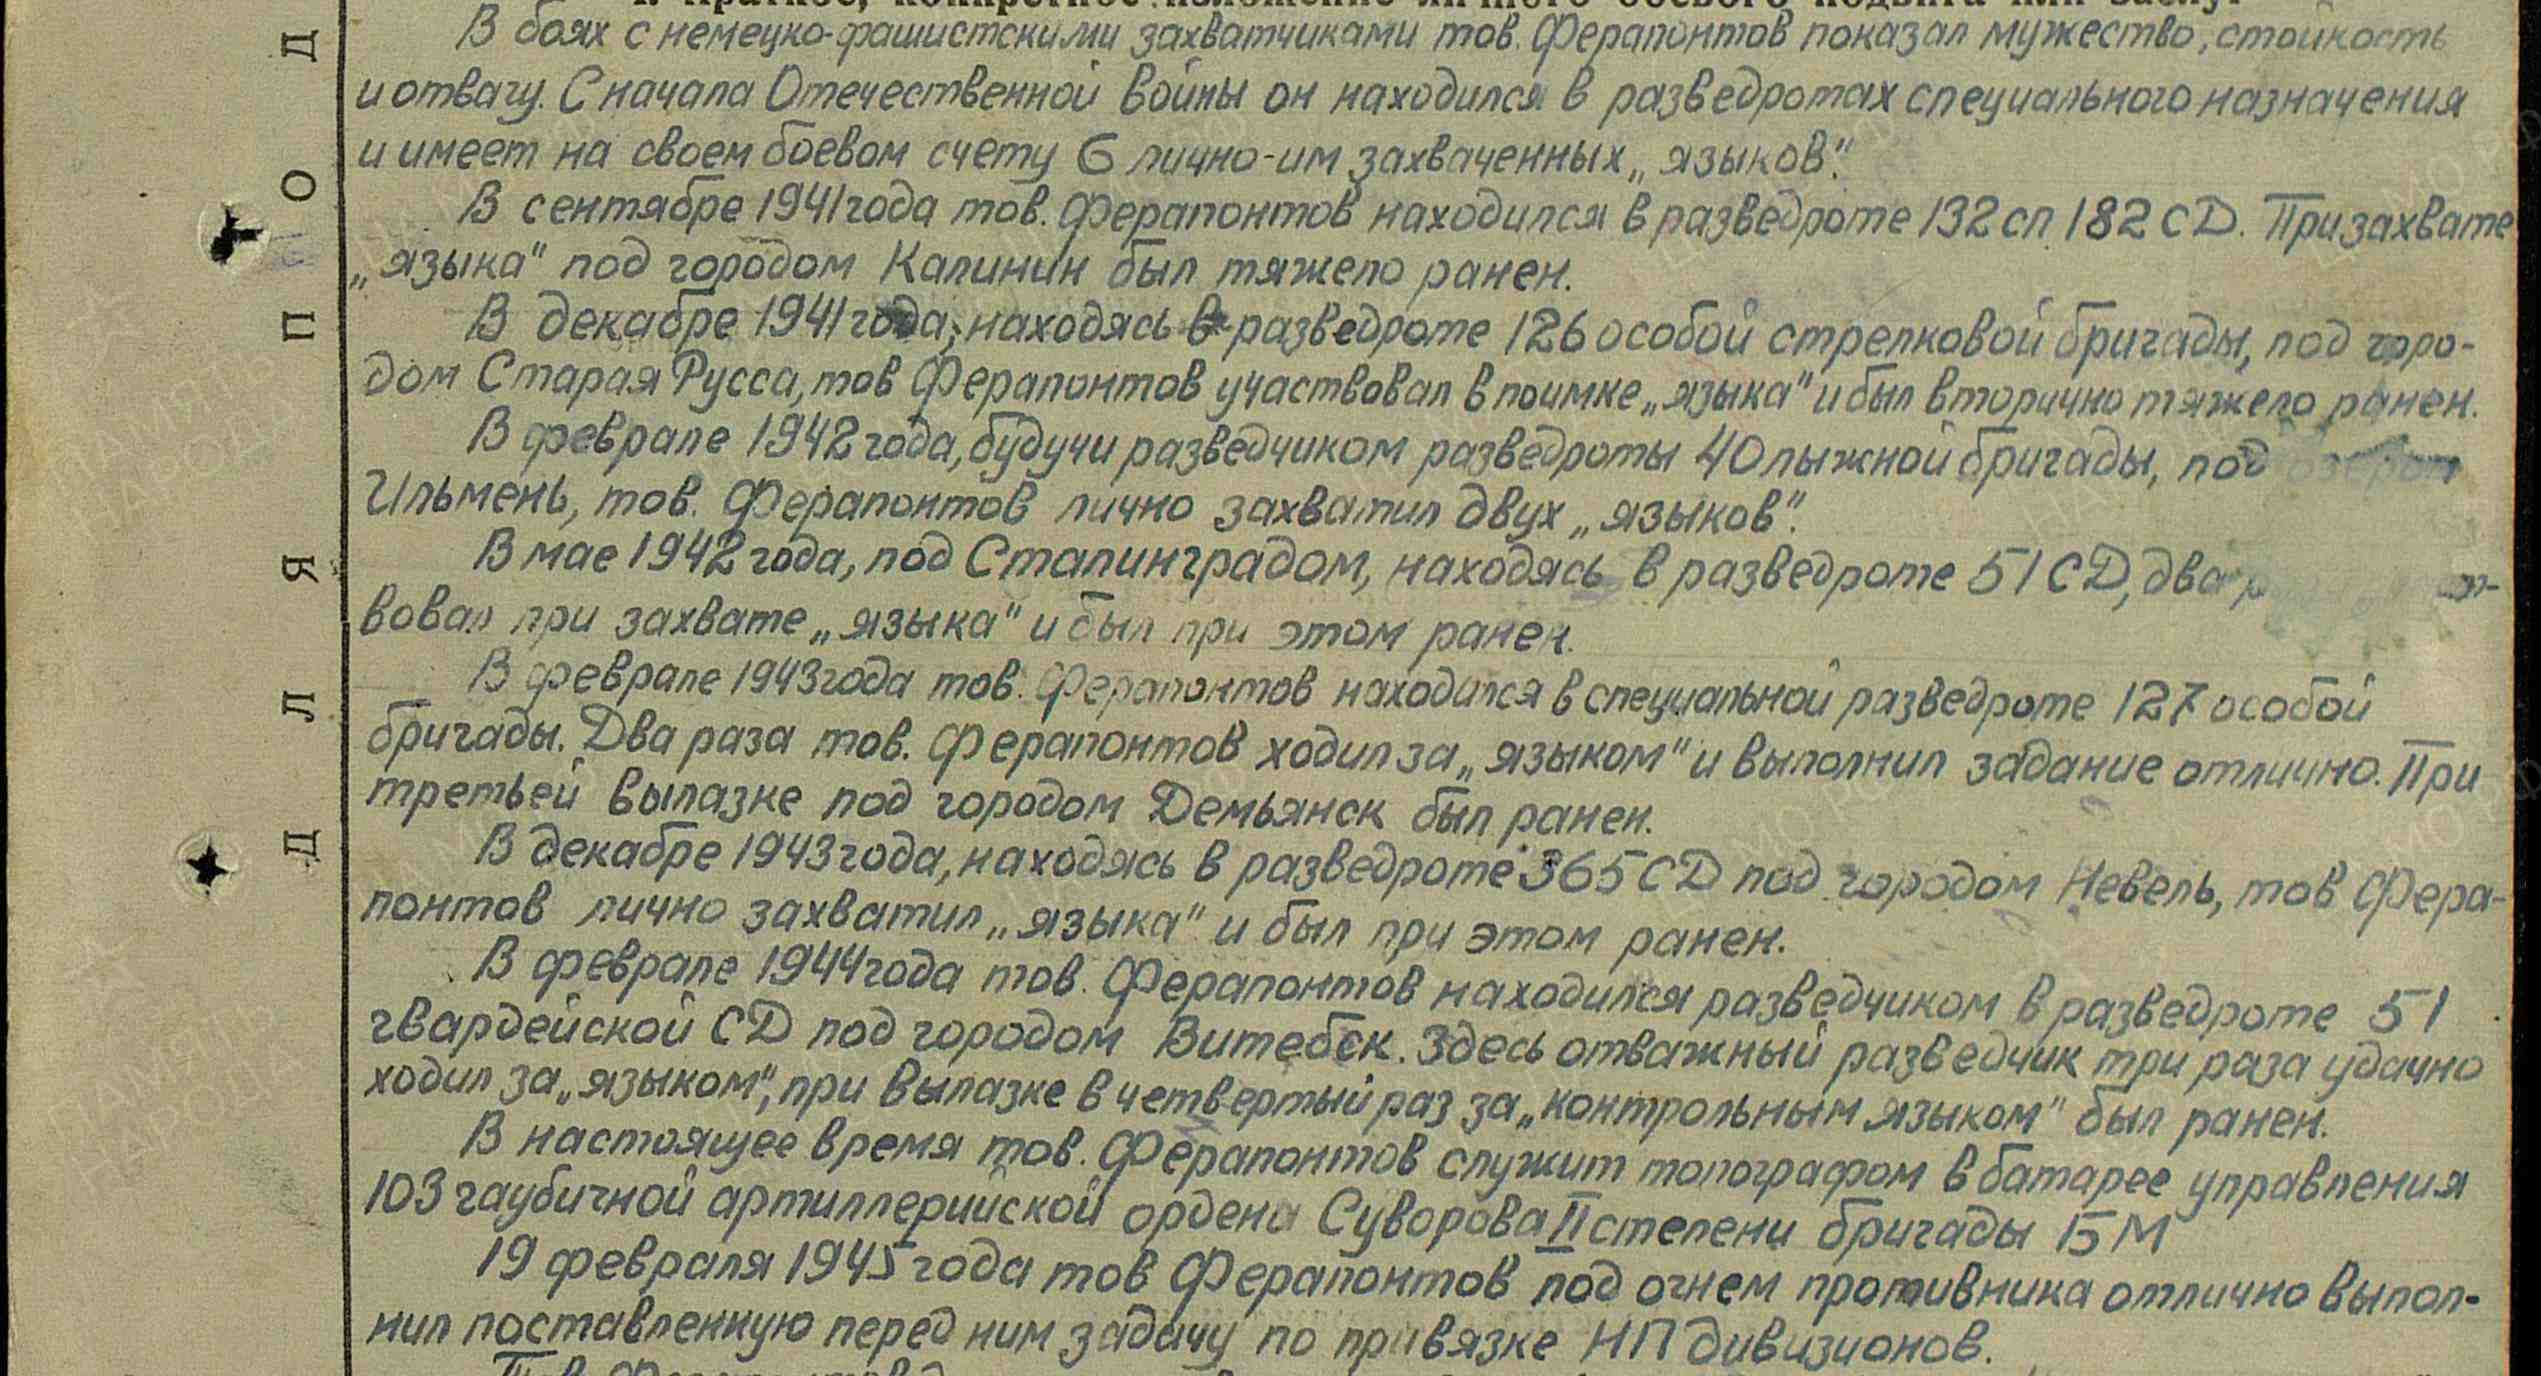 1. Краткое, конкретное изложение личного боевого подвига или заслуг
В боях с немецко-фашистскими захватчиками тов. Ферапонтов показал мужество, стойкость
и отвагу. С начала Отечественной войны он находился в разведротах специального назначения
и имеет на своем боевом счету 6 лично-им захваченных „языков".
В сентябре 1941 года тов. Ферапонтов находился в разведроте 132 сп. 182 СД. При захвате
„языка" под городом Калинин был тяжело ранен.
В декабре 1941 года, находясь в разведроте 126 особой стрелковой бригады, под горо-
дом Старая Русса, тов Ферапонтов участвовал в поимке „языка" и был вторично тяжело ранен.
В феврале 1942 года, будучи разведчиком разведроты 40 лыжной бригады, под озером
Ильмень, тов. Ферапонтов лично захватил двух „языков".
В мае 1942 года, под Сталинградом, находясь в разведроте 51 СД, два
вовал при захвате „языка" и был при этом ранен.
В феврале 1943 года тов. Ферапонтов находился в специальной разведроте 127 особой
бригады. Два раза тов. Ферапонтов ходил за „языком" и выполнил задание отлично. При
третьей вылазке под городом Демьянск был ранен.
В декабре 1943 года, находясь в разведроте 365 СД под городом Невель, тов Фера-
понтов лично захватил „языка" и был при этом ранен.
В феврале 1944 года тов. Ферапонтов находился разведчиком в разведроте 51
гвардейской СД под городом Витебск. Здесь отважный разведчик три раза удачно
ходил за „языком", при вылазке в четвертый раз за „контрольным языком" был ранен.
В настоящее время тов. Ферапонтов служит топографом в батарее управления
103 гаубичной артиллерийской ордена Суворова II степени бригады БМ
19 февраля 1945 года тов Ферапонтов под огнем противника отлично выпол-
нил поставленную перед ним задачу по привязке НП дивизионов.
ДЛЯ ПОД
ПАМЯТЬ
НАРОДА